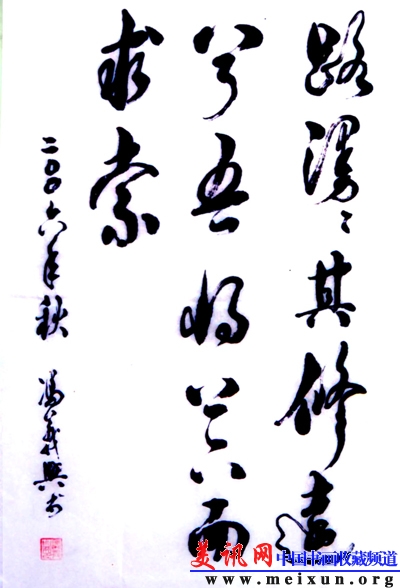 路漫漫其修远
兮吾将上下而
求索
二〇〇六年秋 冯义兴书
美讯网中国书画收藏频道
www.meixun.org